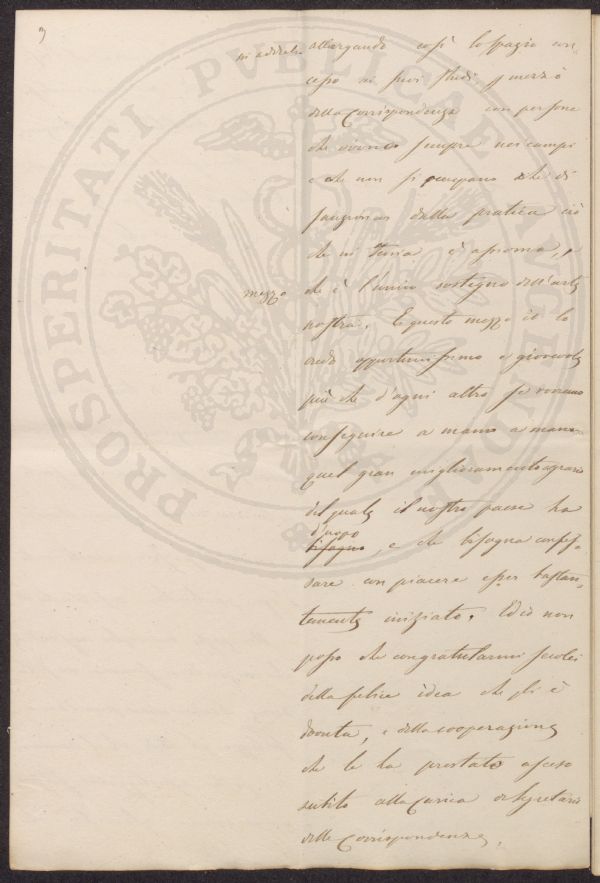 3
PROSPERITATI PVBLICAE AVGENDAE
allargando così lo spazio con
cesso ai suoi studj p mezzo
della Corrispondenza con persone
che vivono sempre nei campi
e che non si occupano che di
dalla pratica ciò
che in teoria è assioma, e
mezzo che è l'unico sostegno dell'arte
nostra. E questo mezzo io lo
credo opportunissimo e giovevole
più che d'ogni altro se vorremo
conseguire a mano a mano
quel gran miglioramento agrario
del quale il nostro paese ha
d'uopo
bisogno, e che bisogna confes-
sare con piacere esser bastan-
temente iniziato. Ed io non
posso che congratularmi seco lei
della felice idea che gli è
venuta, e della cooperazione
che le ha prestato asceso
subito alla Carica di Segretario
delle Corrispondenze.